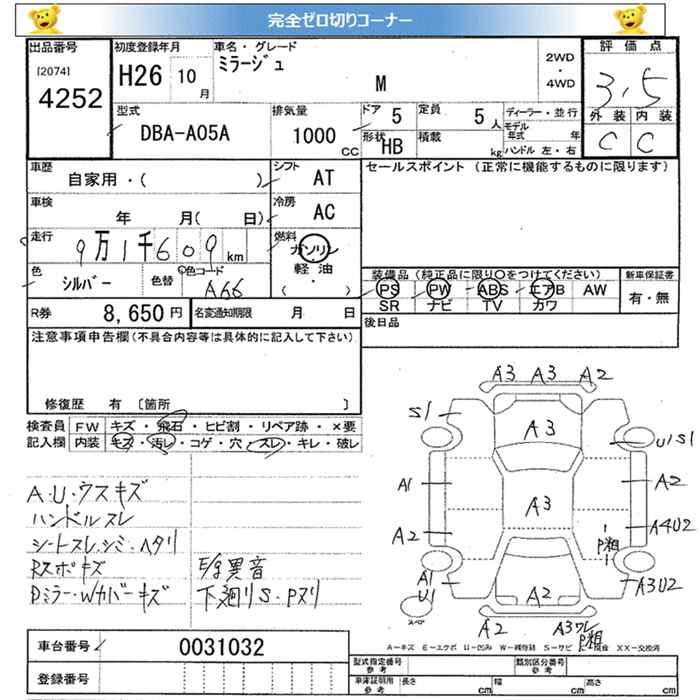 完全ゼロ切りコーナー
出品番号
[2074]
4252
初度登録年月
H26 10月
車名・グレード
ミラージュ
M
2WD
・
4WD
評価点
3.5
外装 内装
C C
型式
DBA-A05A
排気量
1000 CC
ドア 5
定員 5人
形状 HB
積載 kg
ディーラー・並行
モデル年式 年
ハンドル 左・右
車歴
自家用・( )
シフト AT
車検
年 月( 日)
冷房 AC
走行 9万1千609km
燃料
ガソリン
軽油
( ・ )
色 シルバー
色替
色コード A66
R券 8,650円
名変通知期限 月 日
セールスポイント (正常に機能するものに限ります)
装備品 (純正品に限り○をつけてください)
PS PW ABS エアB AW
SR ナビ TV カワ
新車保証書
有・無
後日品
注意事項申告欄(不具合内容等は具体的に記入して下さい)
修復歴 有 [箇所 ]
検査員記入欄
FW キズ・飛石・ヒビ割・リペア跡・×要
内装 キズ・汚レ・コゲ・穴・スレ・キレ・破レ
A・U・ウスキズ
ハンドルスレ
シートスレ・シミ・ヘタリ
Rスポキズ
Dミラー・Wカバーキズ
E/g異音
下廻りS・Pヌリ
A3 A3 A2
S1
A3
U1S1
A1
A3
A2
A2
A4U2
P粗
A1
U1
A2
A3U2
スペア
A2
A3ワレ
P粗
A=キズ E=エクボ U=凹み W=補修跡 S=サビ
XX=交換済
車台番号 0031032
登録番号
型式指定番号
参考
類別区分番号
参考
車庫証明用
参考
長さ cm
幅 cm
高さ cm